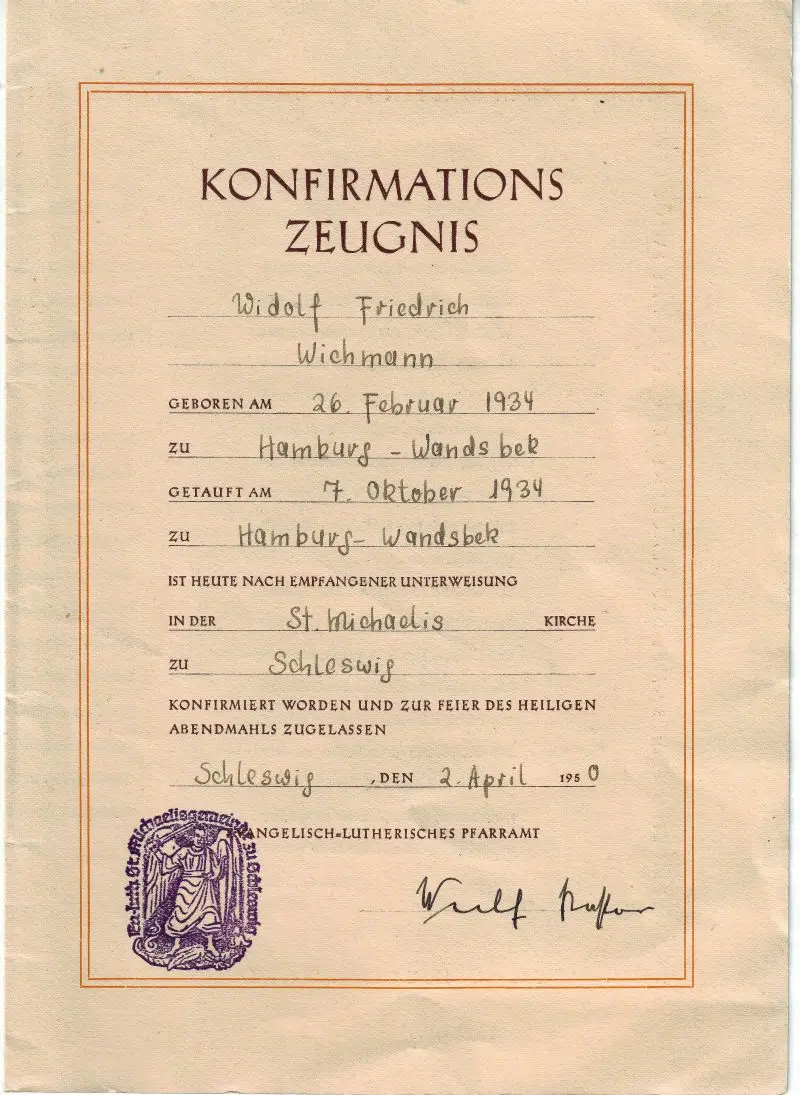 KONFIRMATIONS
ZEUGNIS
Widolf Friedrich
Wichmann
GEBOREN AM 26. Februar 1934
ZU Hamburg - Wandsbek
GETAUFT AM 7. Oktober 1934
ZU Hamburg - Wandsbek
IST HEUTE NACH EMPFANGENER UNTERWEISUNG
IN DER St. Michaelis KIRCHE
ZU Schleswig
KONFIRMIERT WORDEN UND ZUR FEIER DES HEILIGEN
ABENDMAHLS ZUGELASSEN
Schleswig, DEN 2. April 1950
EVANGELISCH=LUTHERISCHES PFARRAMT
Ev.-luth. St. Michaelisgemeinde zu Schleswig
Pastor